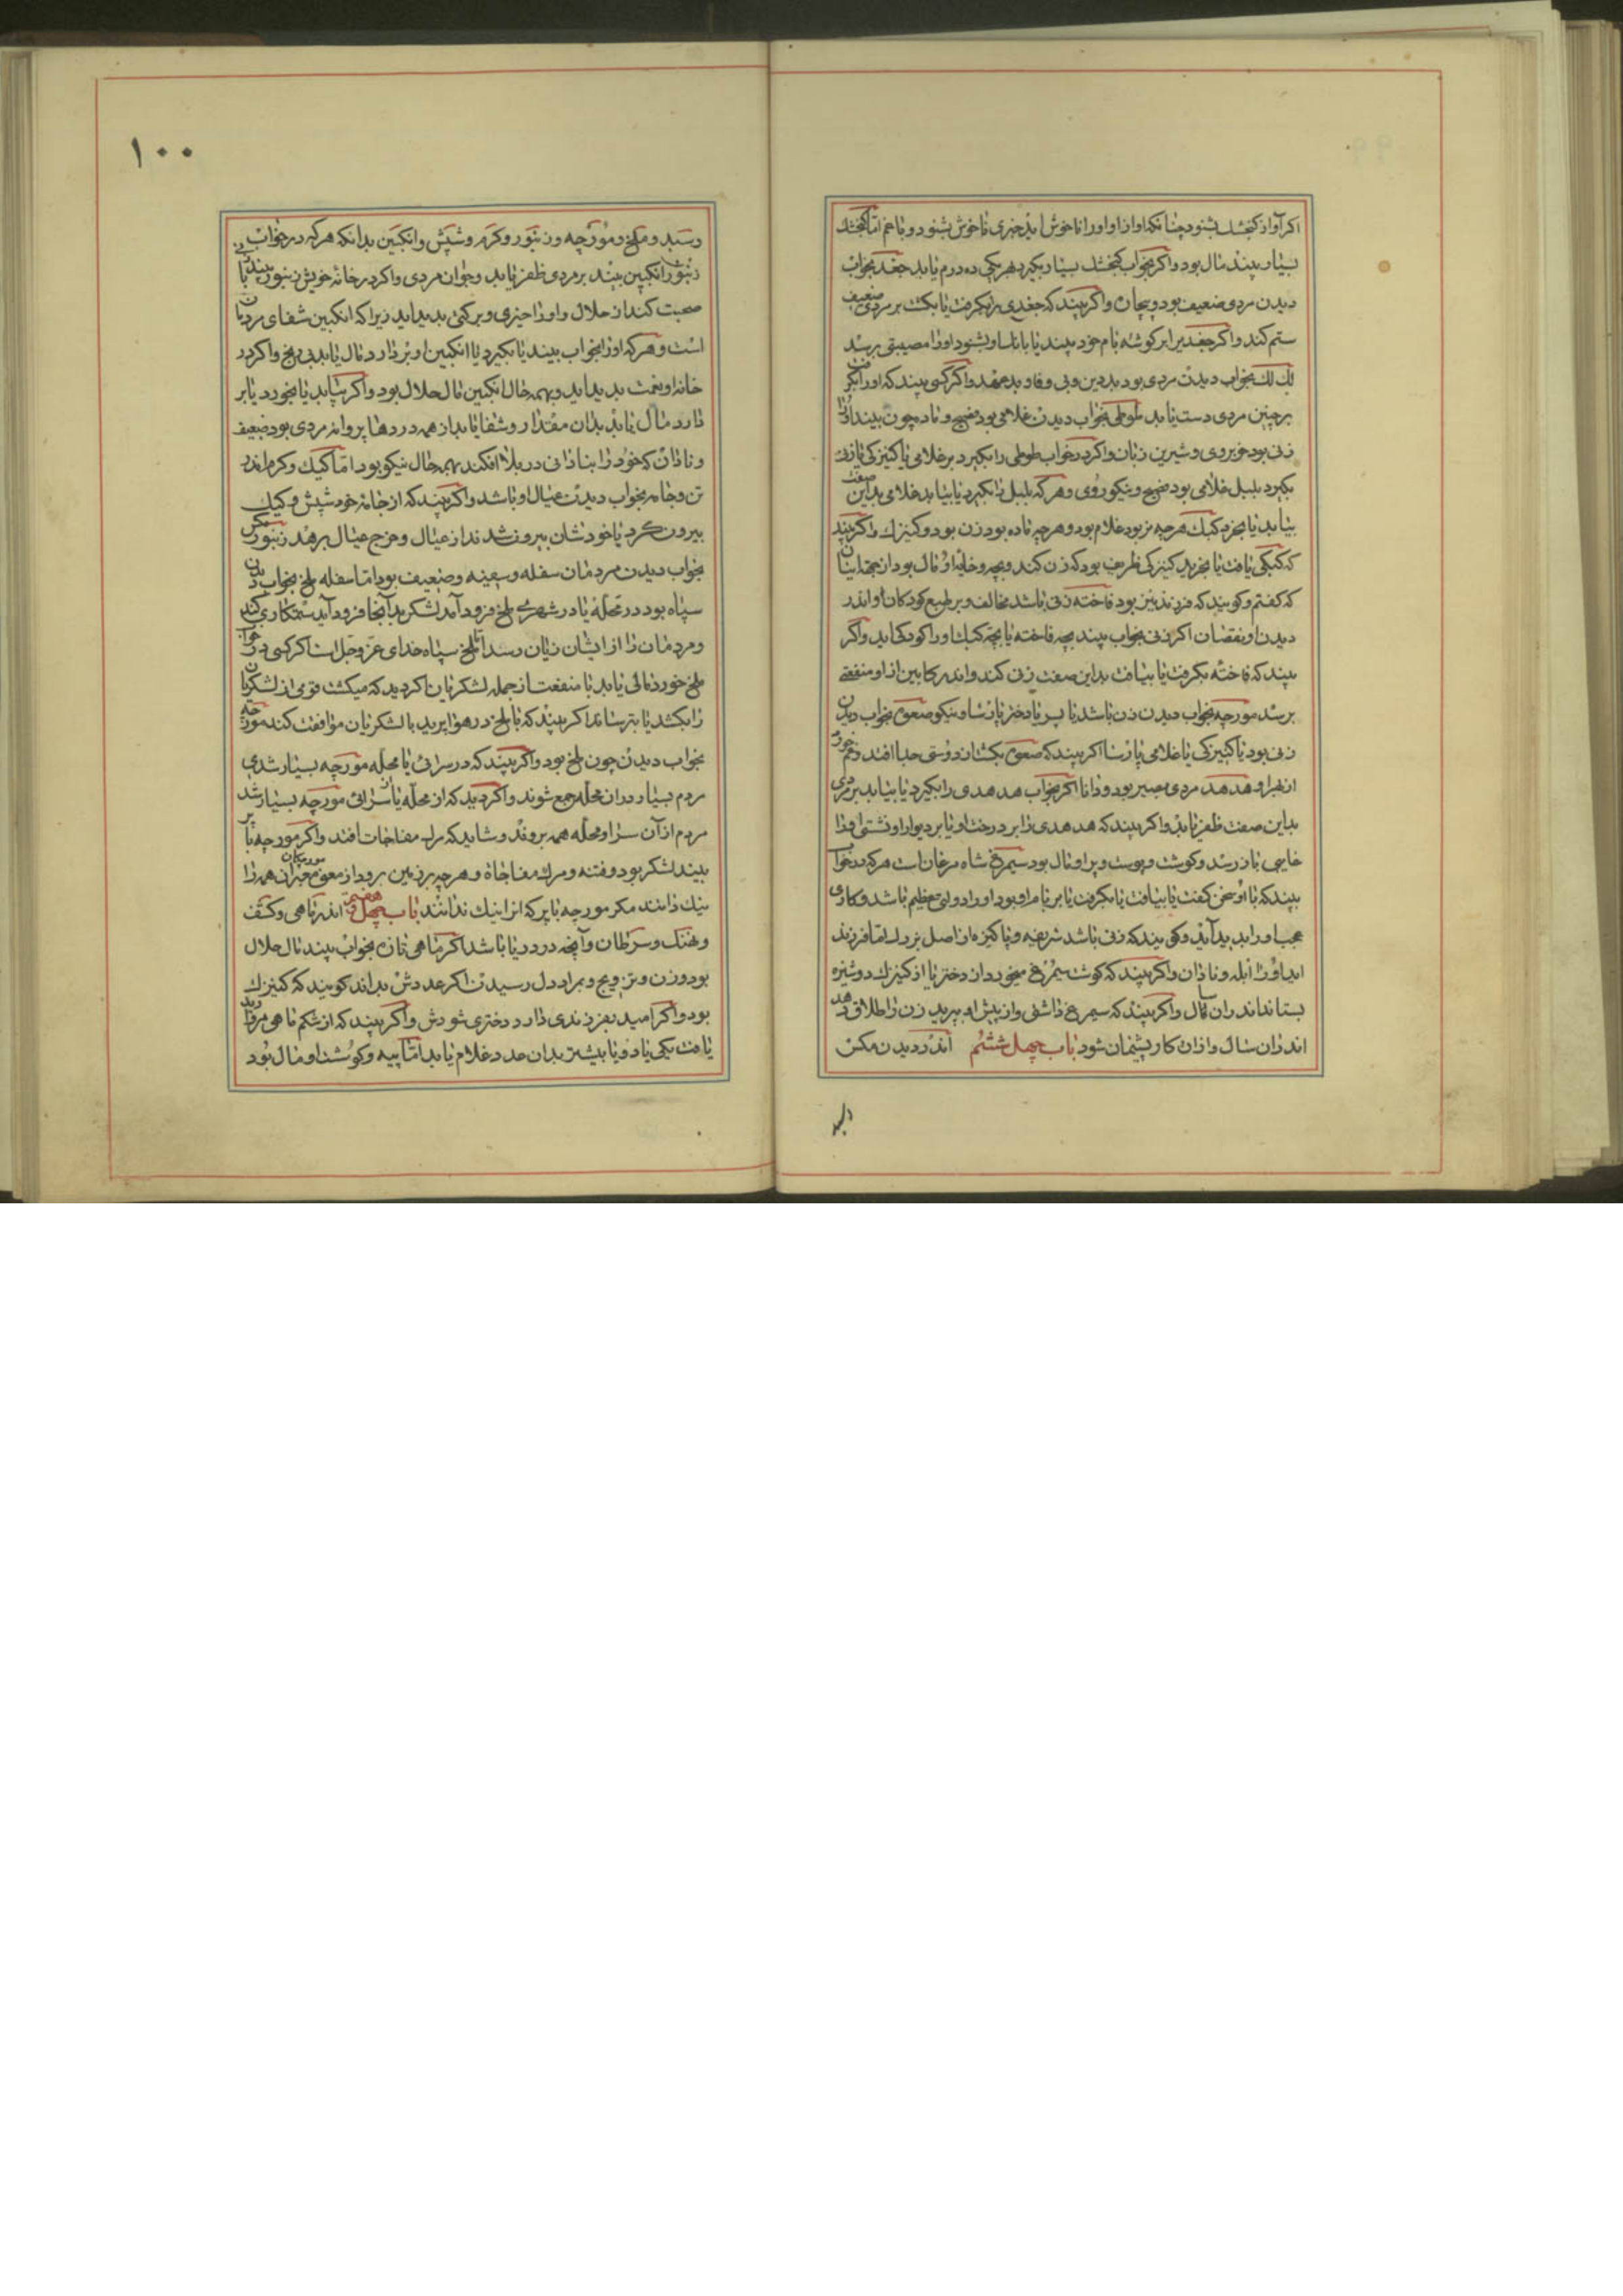 اکر آواز کنجشک بشنود چنانکه اواز او اورا ناخوش اید خبری ناخوش بشنود و با غم اما کنجشک
بسیار بیند مال بود واکر بخواب کنجشک بسیار بکیرد هر یکی ده درم یابد جغد بخواب
دیدن مردی ضعیف بود و بیجان واکر بیند که جغدی را بکرفت یا بکشت بر مردی ضعیف
ستم کند واکر جغد برابر کوشه بام خود بیند یا بانک او بشنود اورا مصیبتی برسد
لک لک بخواب دیدن مردی بود بددین و بی وفا و بدعهد واکر کسی بیند که اورا بکرفت
بر چنین مردی دست یابد طوطی بخواب دیدن غلامی بود فصیح و ماده چون بیند اورا
زنی بود خوبروی و شیرین زبان واکر در خواب طوطی را بکیرد بر غلامی یا کنیزکی یا زنی
بکیرد بلبل غلامی بود فصیح و نیکوروی و هر که بلبل را بکیرد یا بیابد غلامی بداین صفت
بیابد یا بخرد کبک هرچه نر بود غلام بود و هرچه ماده بود زن بود و کنیزک واکر بیند
که کبکی یافت یا بخرید کنیزکی ظریف بود که زن کند و بچه و خایه او مال بود از جهت اینان
که کفتم و کویند که فرزند نیز بود فاخته زنی باشد مخالف و بر طبع کودکان او اندر
دیدن او نقصان اکر زنی بخواب بیند بچه فاخته یا بچه کبک اورا کودکی اید واکر
بیند که فاخته بکرفت یا بیافت بداین صفت زنی کند و اندر کابین از او منفعتی
برسد مورچه بخواب دیدن زن باشد یا پسر یا دختر پارسا و نیکو صعوه بخواب دیدن
زنی بود یا کنیزکی یا غلامی پارسا اکر بیند که صعوه بکشت از دوستی جدا افتد و غم خورد
از هجر او هدهد مردی مبصر بود و دانا اکر بخواب هدهدی را بکیرد یا بیابد بر مردی
بداین صفت ظفر یابد واکر بیند که هدهدی را بر درخت او یا بر دیوار او نشستی اورا
خایبی باز رسد و کوشت و پوست و پر او مال بود سیمرغ شاه مرغان است هر که در خواب
بیند که با او سخن کفت یا بیافت یا بکرفت یا بر بام او بود اورا دولتی عظیم باشد و کاری
عجب اورا پدید آید و کویند که زنی باشد شریفه و پاکیزه از اصل بزرک اما فرزند
اید اورا ابله و نادان واکر بیند که کوشت سیمرغ میخورد از دختر یا از کنیزک دوشیزه
بستاند اندران سال مال واکر بیند که سیمرغ داشتی و از پیش او بپرید زن را طلاق دهد
اندران سال و ازان کار پشیمان شود باب چهل ششم اندر دیدن مکس
رسید و ملخ و مورچه و زنبور و کرم و شپش و انکبین بدانکه هر که در خواب
زنبور انکبین بیند بر مردی ظفر یابد و جوان مردی واکر در خانه خویش زنبور بیند با
صحبت کند از حلال و اورا خیری و برکتی پدید اید زیرا که انکبین شفای مردمان
است و هر که اورا بخواب بیند یا بکیرد یا انکبین او بردارد مال یابد بی رنج واکر در
خانه او نعمت پدید اید و بهمه حال انکبین مال حلال بود واکر بیابد یا بخورد یا بر
دارد مال یابد بدان مقدار و شفا یابد از همه دردها پروانه مردی بود ضعیف
و نادان که خود را بنادانی در بلا افکند بهمه حال نیکو بود اما کیک و کرم اندر
تن و جامه بخواب دیدن عیال او باشد واکر بیند که از جامه خود شپش و کیک
بیرون کرد یا خودشان بیرون شدند از عیال و خرج عیال برهد زنبور مکس
بخواب دیدن مردمان سفله و سفینه و ضعیف بود اما سفله ملخ بخواب دیدن
سپاه بود در محله یا در شهری ملخ فرود آمد لشکر بدآنجا فرود آید ستمکاری کند
و مردمان را از ایشان زیان رسد اما ملخ سپاه خدای عز و جل است اکر کسی در خواب
ملخ خورد مالی یابد با منفعت از جمله لشکریان اکر دید که میکشت قومی از لشکریان
را بکشد یا بترساند اکر بیند که با ملخ در هوا پرید با لشکریان موافقت کند مورچه
بخواب دیدن چون ملخ بود واکر بیند که در سرائی یا محله مورچه بسیار شدی
مردم بسیار دران محله جمع شوند واکر دید که از آن محله یا سرائی مورچه بسیار شد
مردم از آن سرا و محله همه بروند و شاید که مرک مفاجات افتد واکر مورچه با پر
بیند لشکر بود و فتنه و مرک مفاجاة و هرچه بر زمین برود از معنی مورچکان معبران همه را
نیک دانند مکر مورچه با پر که انرا نیک ندانند باب چهل و هفتم اندر ماهی و کشف
و نهنک و سرطان و آنچه در دریا باشد اکر ماهی تازه بخواب بیند مال حلال
بود و زن و تزویج و بمراد دل رسیدن اکر عددش بداند کویند که کنیزک
بود واکر امید بفرزندی دارد دختری شودش واکر بیند که از شکم ماهی مروارید
یافت یکی یا دو یا بیشتر بدان عدد غلام یابد اما پیه و کوشت او مال بود
۱۰۰